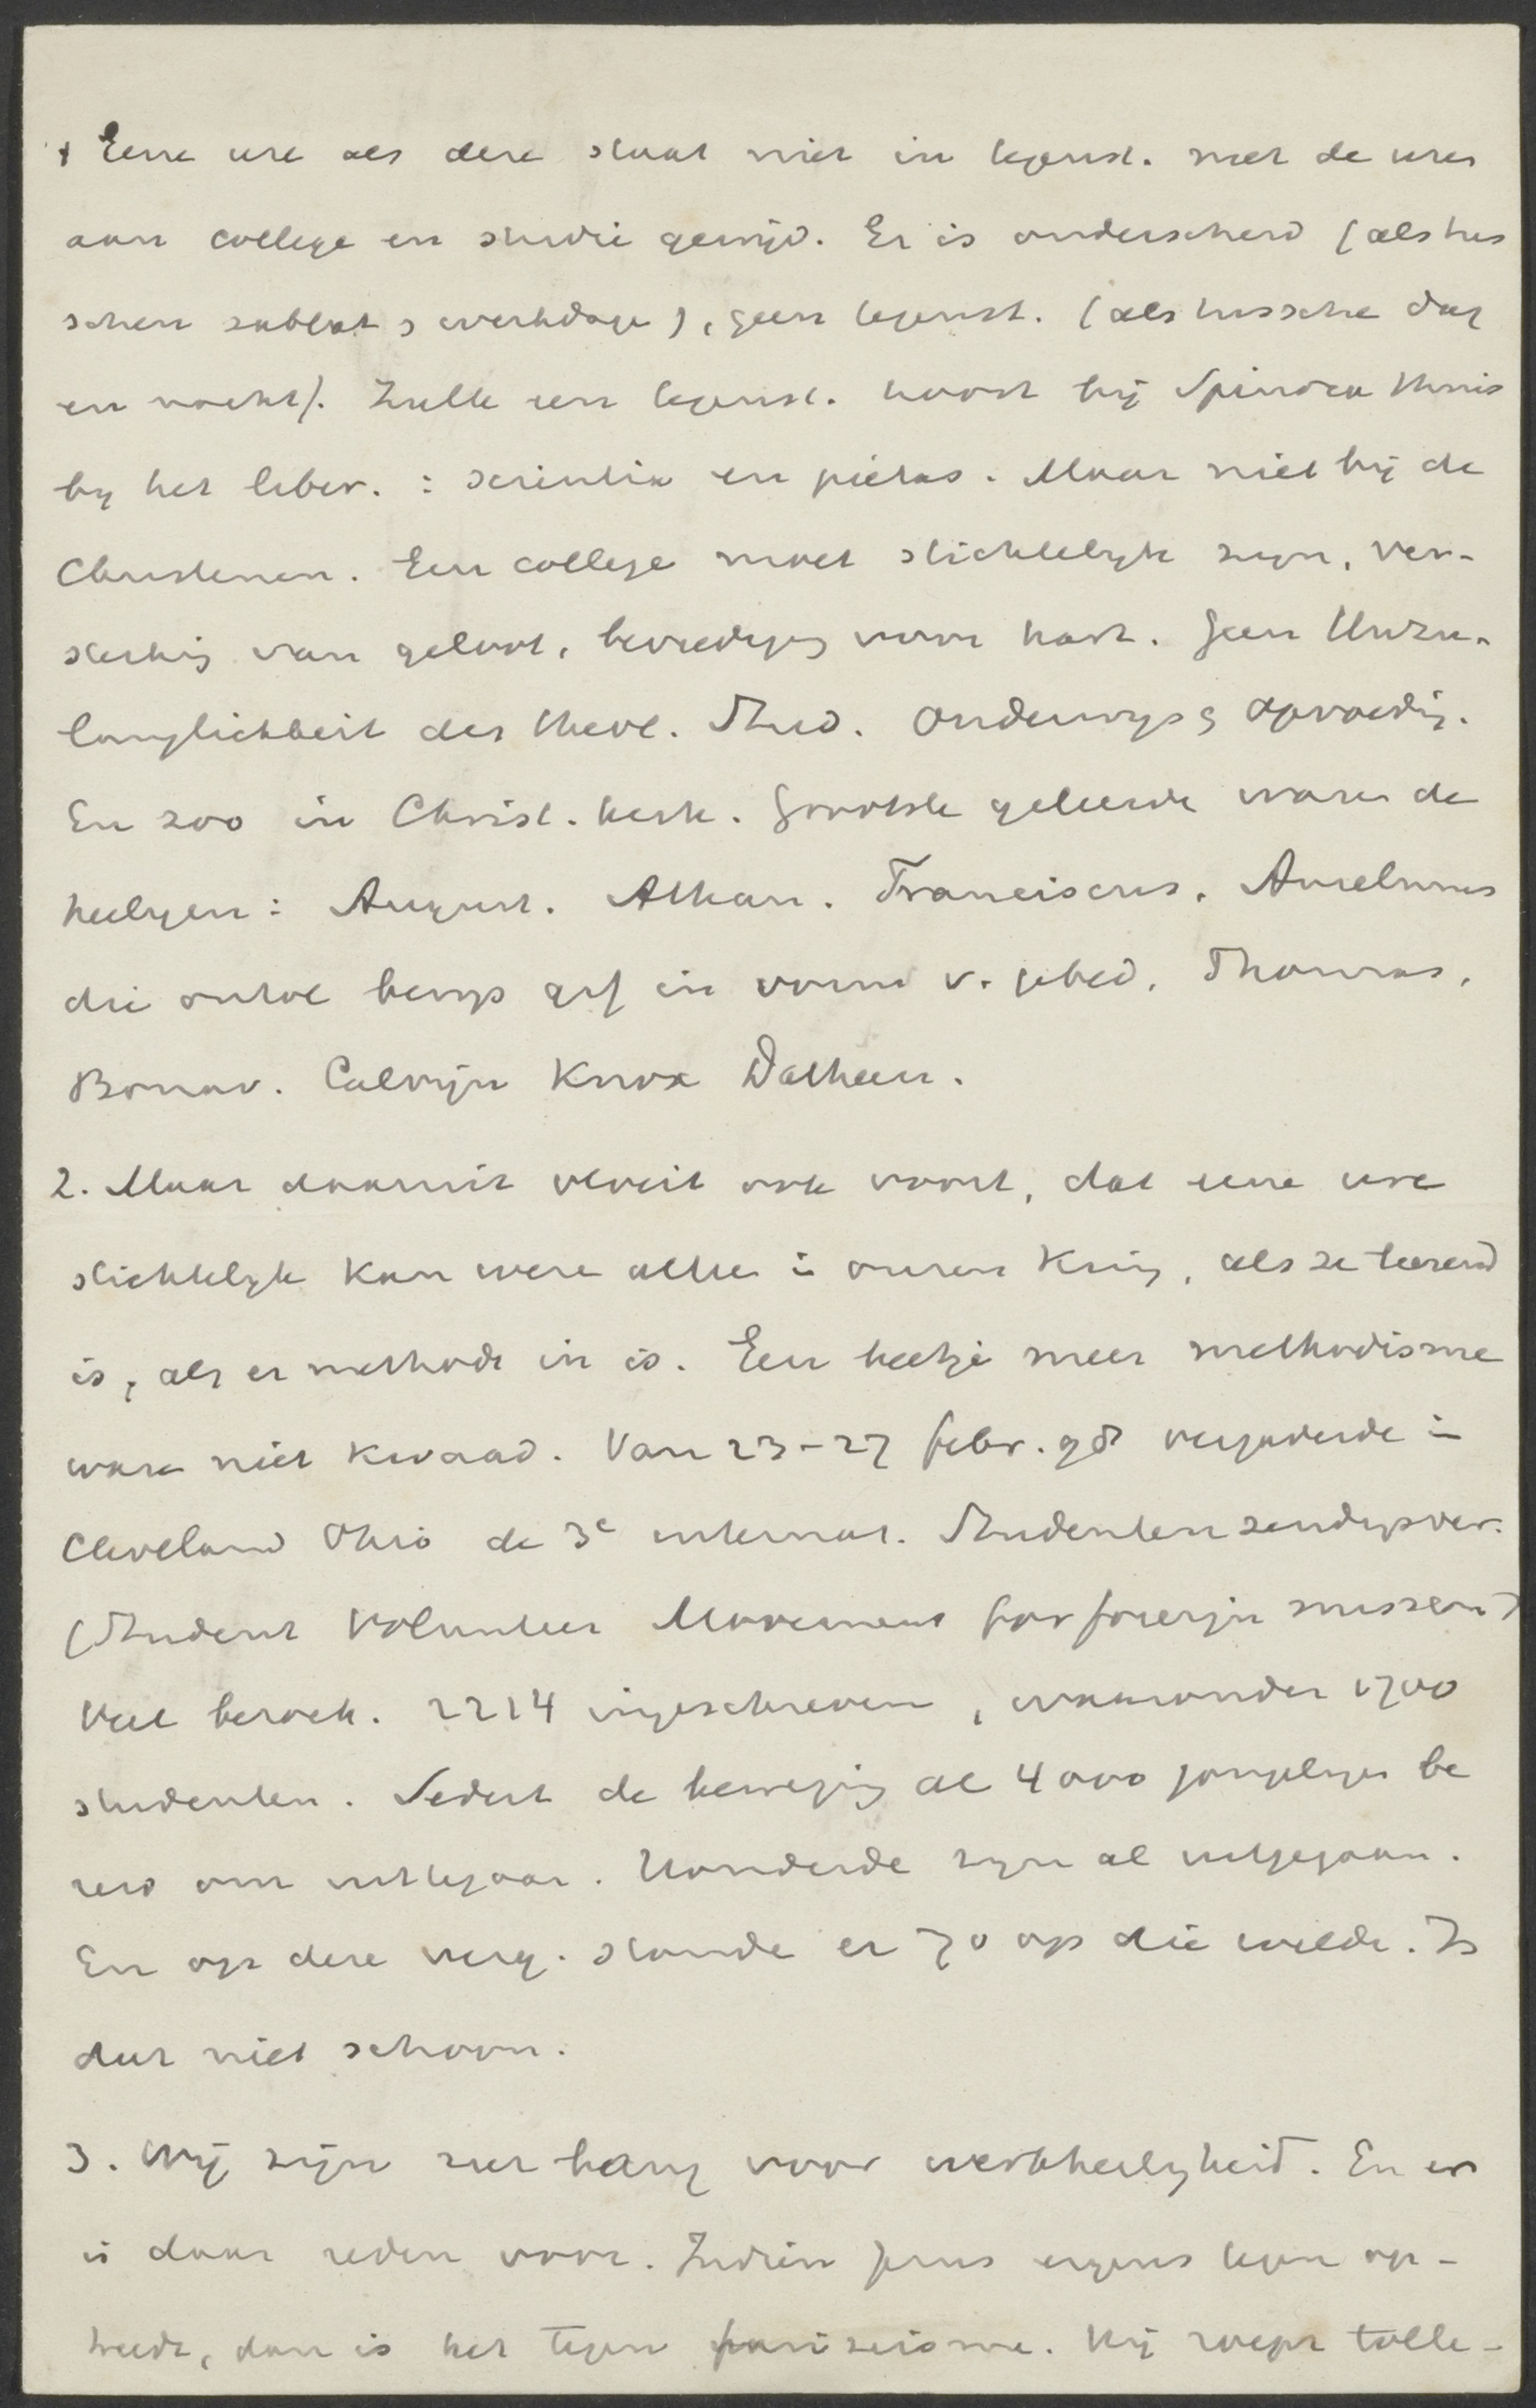 1 Eene ure als deze staat niet in tegenst. met de uren
aan college en studie gewijd. Er is onderscheid (als tus
schen sabbat & werkdage), geen tegenst. (als tussche dag
en nacht). Zulk een tegenst. hoort bij Spinoza thuis
by het liber. : scientia en pietas. Maar niet bij de
Christenen. Een college moet stichtelyk zyn, ver-
sterking van geloof, bevrediging voor hart. Geen Unzu-
langlichkeit des theol. Stud. Onderwys & opvoedig.
En zoo in Christ. kerk. Grootste geleerde ware de
heiligen: August. Athan. Franciscus, Anselmus
die ontol bewys gaf in vorm v. gebed, Thomas,
Bonav. Calvijn Knox Datheen.
2. Maar daaruit vloeit ook voort, dat eene ure
stichtelyk kan weze althe in onzen Kring, als ze leerend
is, als er methode in is. Een beetje meer methodisme
ware niet kwaad. Van 23-27 febr. 98 vergaderde in
Cleveland Ohio de 3e internat. Studentenzendgsver.
(Student Volunteer Movement for foreign mission)
Veel bezoek. 2214 ingeschreven, waaronder 1700
studenten. Sedert de beweging al 4000 jongelyn be
reid om uittegaan. Honderde zyn al uitgegaan.
En op deze verg. stonde er 70 op die wilde. Is
dat niet schoon.
3. Wij zijn zeer bang voor werkheiligheid. En er
is daar reden voor. Indien Jezus ergens tegen op-
treedt, dan is het tegen farizeisme. Hij roept tolle-